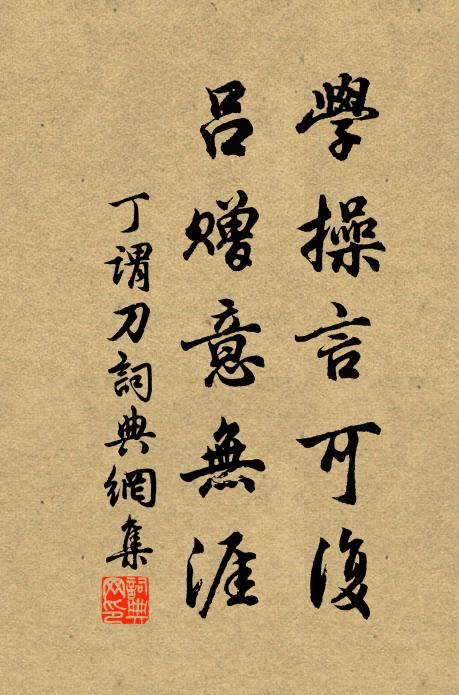 學操言可復
呂贈意無涯
丁謂刀詞典網集
詞典
网印